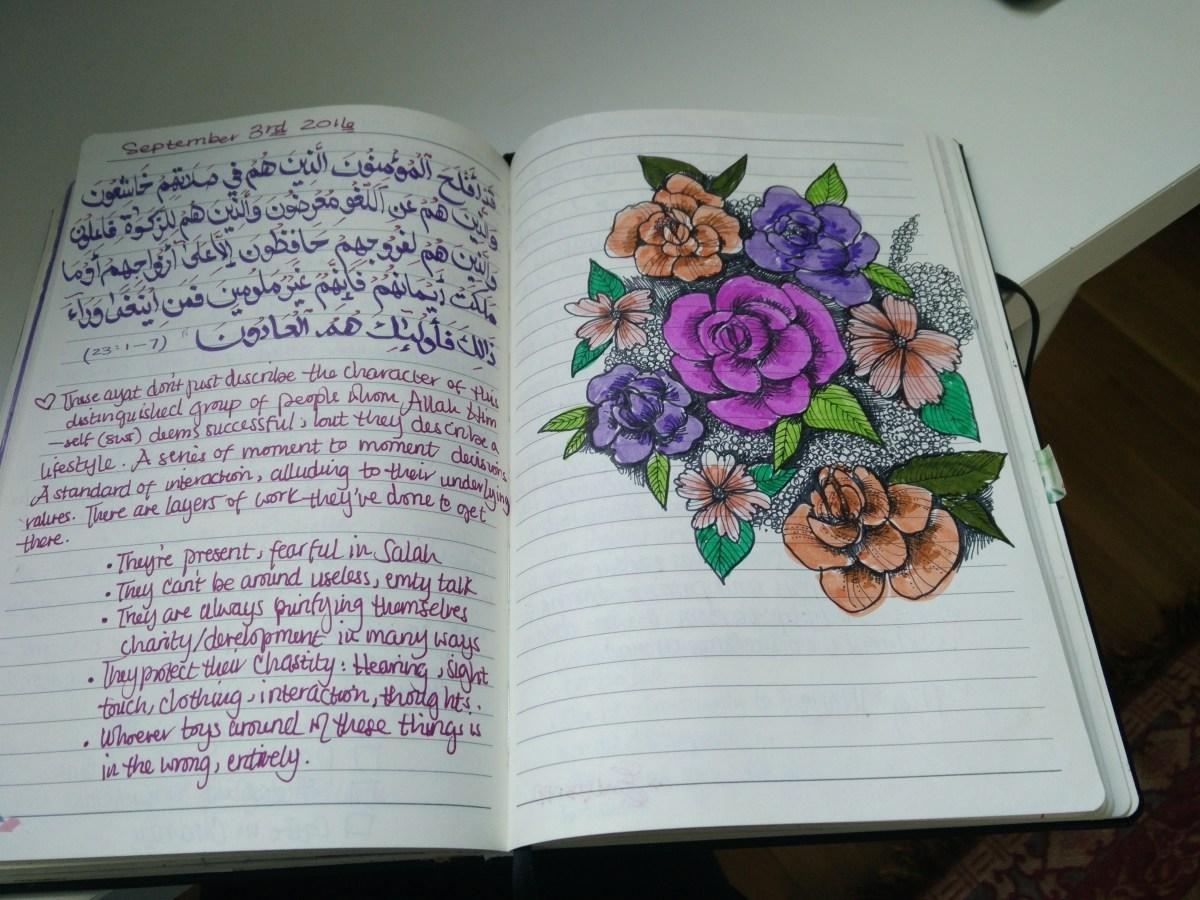 September 3rd 2016
قَدْ أَفْلَحَ ٱلْمُؤْمِنُونَ الَّذِينَ هُمْ فِي صَلَاتِهِمْ خَاشِعُونَ
وَالَّذِينَ هُمْ عَنِ اللَّغْوِ مُعْرِضُونَ وَالَّذِينَ هُمْ لِلزَّكَوٰةِ فَاعِلُونَ
وَالَّذِينَ هُمْ لِفُرُوجِهِمْ حَافِظُونَ إِلَّا عَلَىٰ أَزْوَاجِهِمْ أَوْ مَا
مَلَكَتْ أَيْمَانُهُمْ فَإِنَّهُمْ غَيْرُ مَلُومِينَ فَمَنِ ابْتَغَىٰ وَرَاءَ
ذَٰلِكَ فَأُولَٰئِكَ هُمُ الْعَادُونَ (23:1-7)
♡ These ayat don't just describe the character of this
distinguished group of people whom Allah Him
-self (swt) deems successful, but they describe a
lifestyle. A series of moment to moment decisions.
A standard of interaction, alluding to their underlying
values. There are layers of work they've done to get
there.
• They're present, fearful in Salah
• They can't be around useless, emty talk
• They are always purifying themselves
charity/development in many ways
• They protect their chastity: Hearing, sight
touch, clothing, interaction, thoughts.
• Whoever toys around w these things is
in the wrong, entirely.